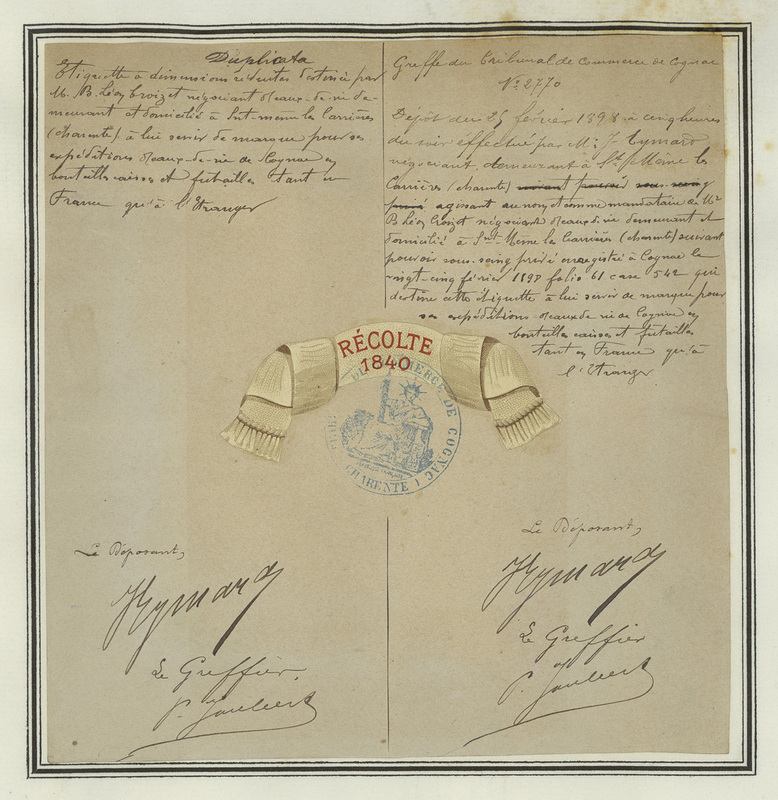 Duplicata
Etiquette à dimensions réduites destinée par
Mr B. Léon Croizet négociant d'eaux-de-vie de-
meurant et domicilié à Snt-meme les Carrières
(Charente) à lui servir de marque pour ses
expéditions d'eaux-de-vie de Cognac en
bouteilles caisses et futailles tant en
France qu'à l'Etranger
Greffe du Tribunal de Commerce de Cognac
No 2770
Dépôt du 25 février 1898 à cinq heures
du soir effectué par Mr J Eymard
négociant, demeurant à St Même les
Carrières (charente) suivant pouvoir sous-seing
privé agissant au nom et comme mandataire de Mr
B Léon Croizet négociant d'eaux-de-vie demeurant et
domicilié à Snt-Même les Carrières (charente) suivant
pouvoir sous-seing privé enregistré à Cognac le
vingt-cinq février 1898 folio 61 case 542 qui
destine cette étiquette à lui servir de marque pour
ses expéditions d'eaux de vie de Cognac en
bouteilles caisses et futailles
tant en France qu'à
l'Etranger
RÉCOLTE
1840
COMMERCE DE COGNAC
(CHARENTE)
Le Déposant,
JEymard
Le Greffier,
P. Joubert
Le Déposant,
JEymard
Le Greffier
P. Joubert